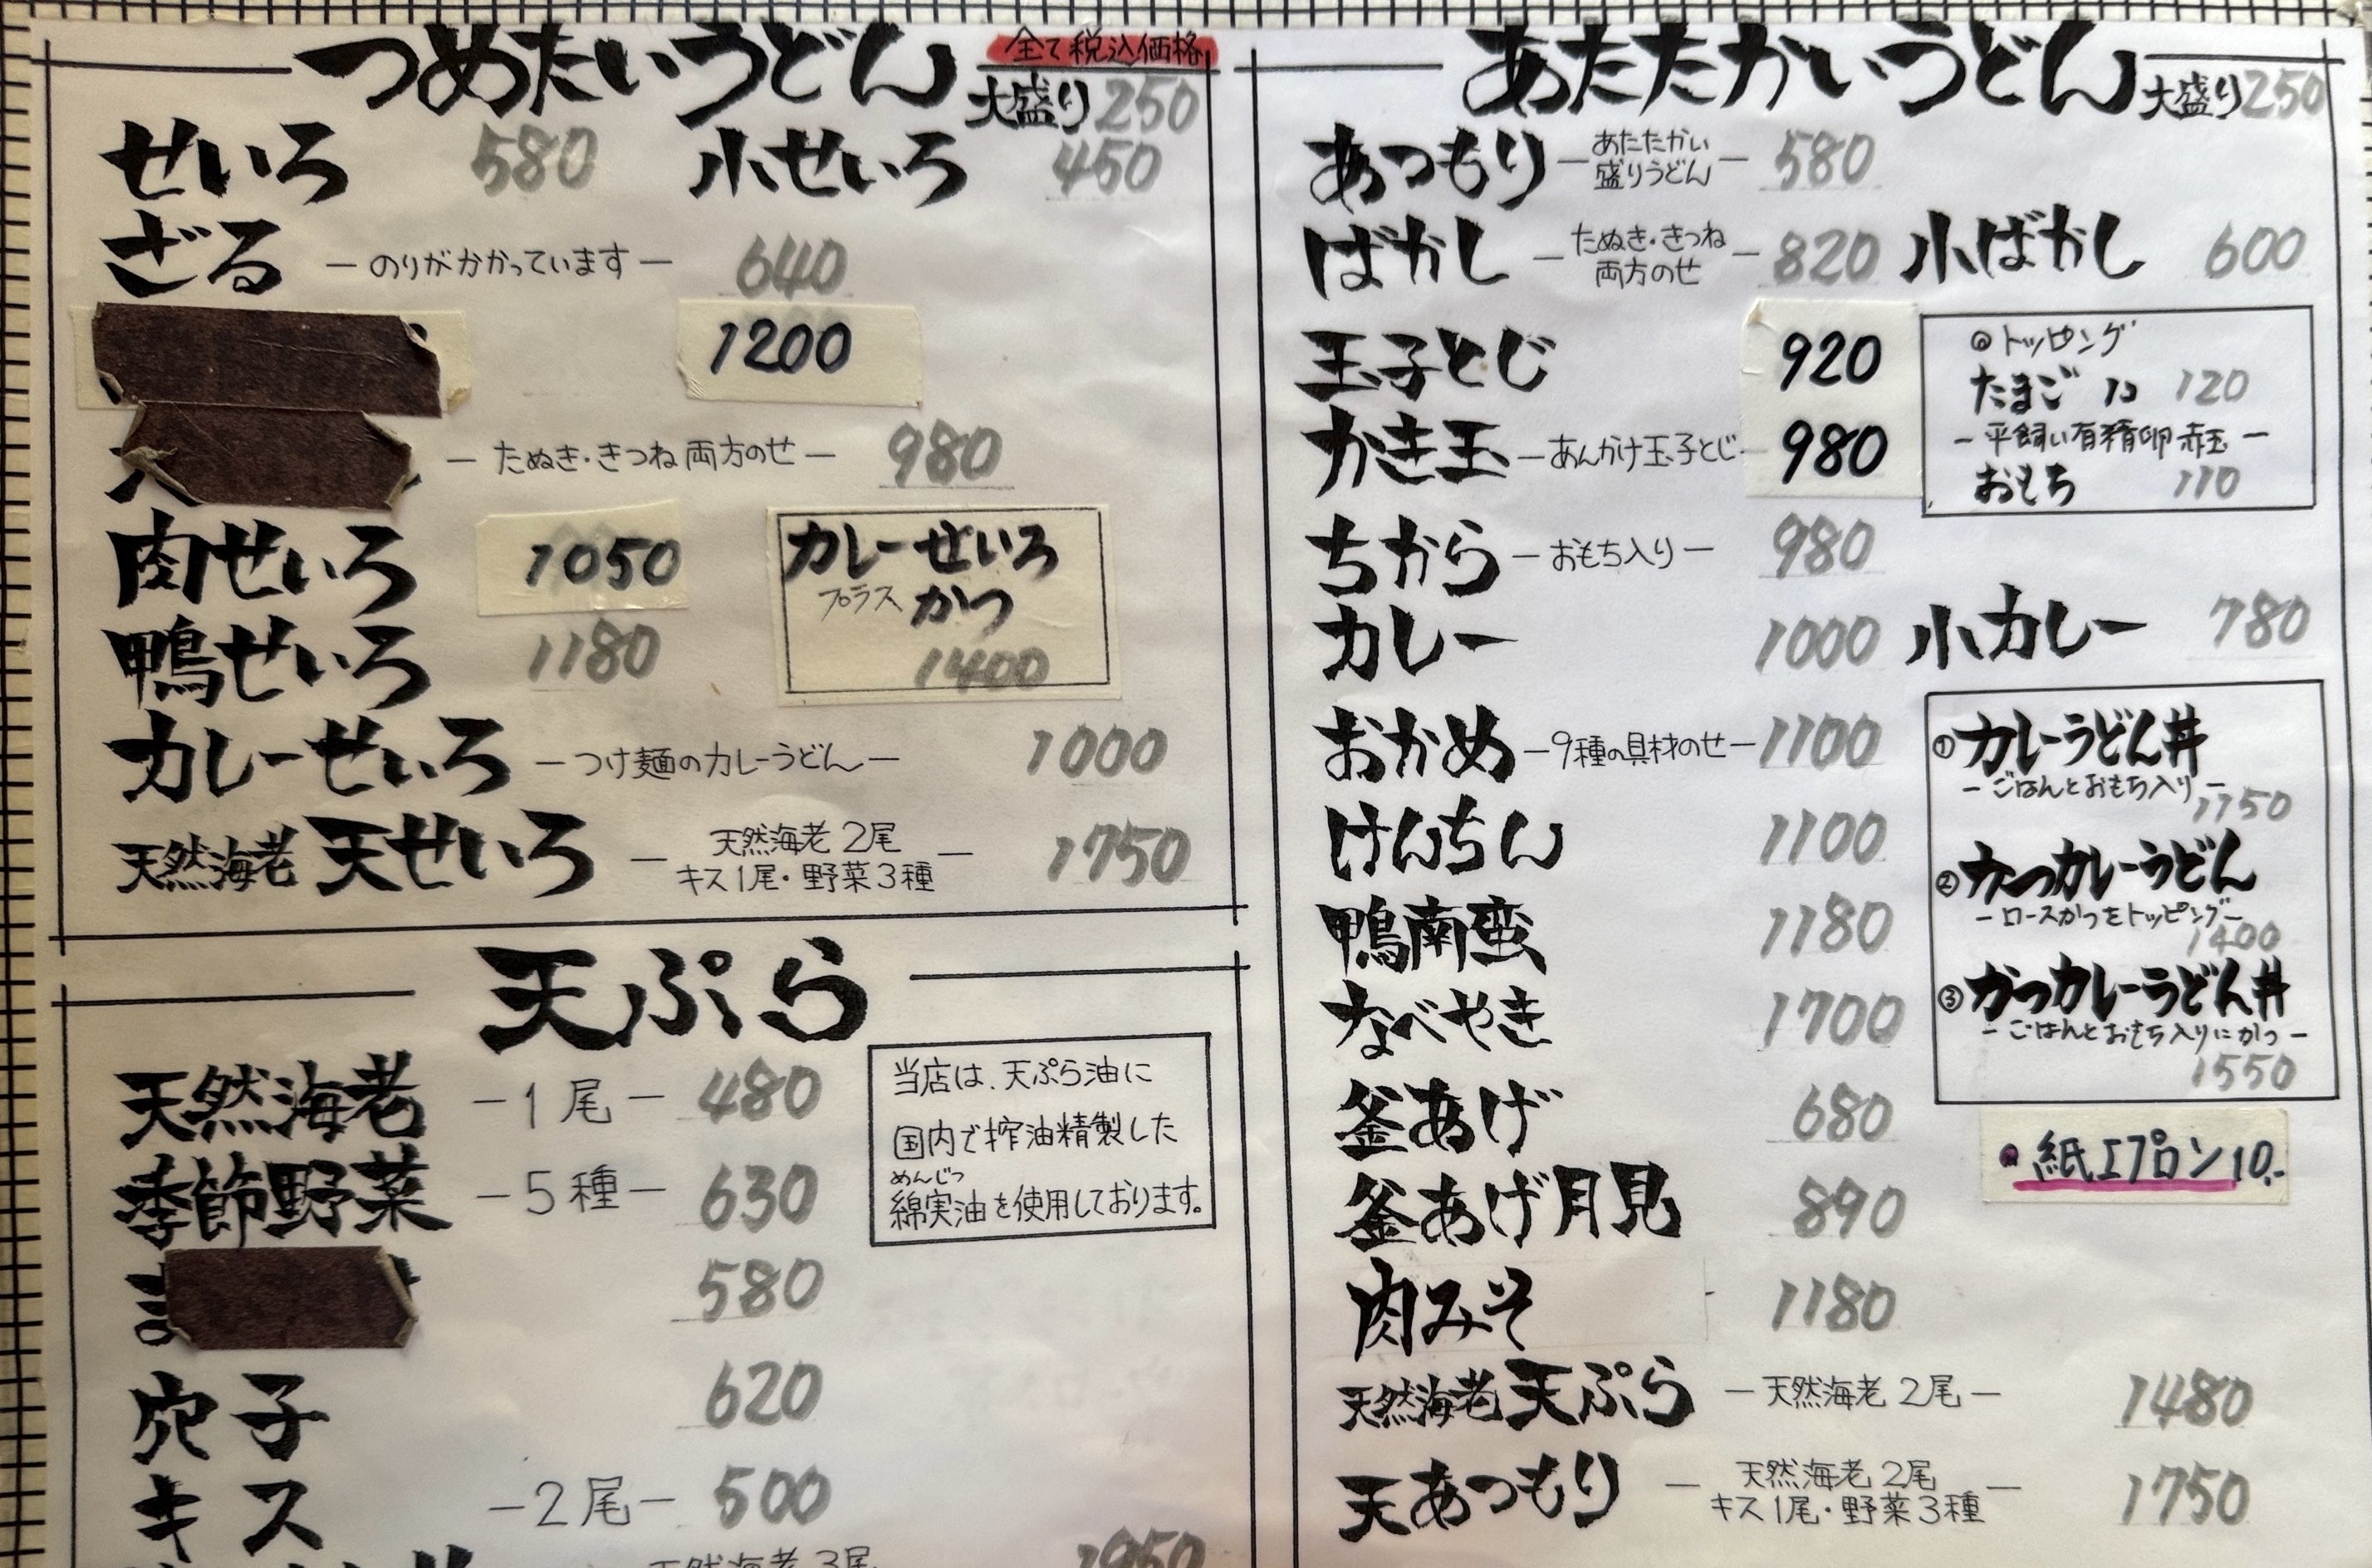 つめたいうどん
全て税込価格
大盛り 250
せいろ 580 小せいろ 450
ざる ーのりがかかっていますー 640
1200
ーたぬき・きつね両方のせー 980
肉せいろ 1050
カレーせいろ
プラス かつ
1400
鴨せいろ 1180
カレーせいろ ーつけ麺のカレーうどんー 1000
天然海老 天せいろ ー天然海老2尾
キス1尾・野菜3種ー 1750
天ぷら
天然海老 ー1尾ー 480
季節野菜 ー5種ー 630
580
穴子 620
キス ー2尾ー 500
天然海老3尾
当店は、天ぷら油に
国内で搾油精製した
めんじつ
綿実油を使用しております。
あたたかいうどん
大盛り 250
あつもり ーあたたかい
盛りうどんー 580
ばかし ーたぬき・きつね
両方のせー 820 小ばかし 600
玉子とじ 920
かき玉 ーあんかけ玉子とじー 980
◎トッピング
たまご 1コ 120
ー平飼い有精卵赤玉ー
おもち 110
ちから ーおもち入りー 980
カレー 1000 小カレー 780
おかめ ー9種の具材のせー 1100
けんちん 1100
鴨南蛮 1180
なべやき 1700
釜あげ 680
釜あげ月見 890
肉みそ 1180
天然海老 天ぷら ー天然海老2尾ー 1480
天あつもり ー天然海老2尾
キス1尾・野菜3種ー 1750
①カレーうどん丼
ーごはんとおもち入りー
1150
②かつカレーうどん
ーロースかつをトッピングー
1400
③かつカレーうどん丼
ーごはんとおもち入りにかつー
1550
●紙エプロン10.-